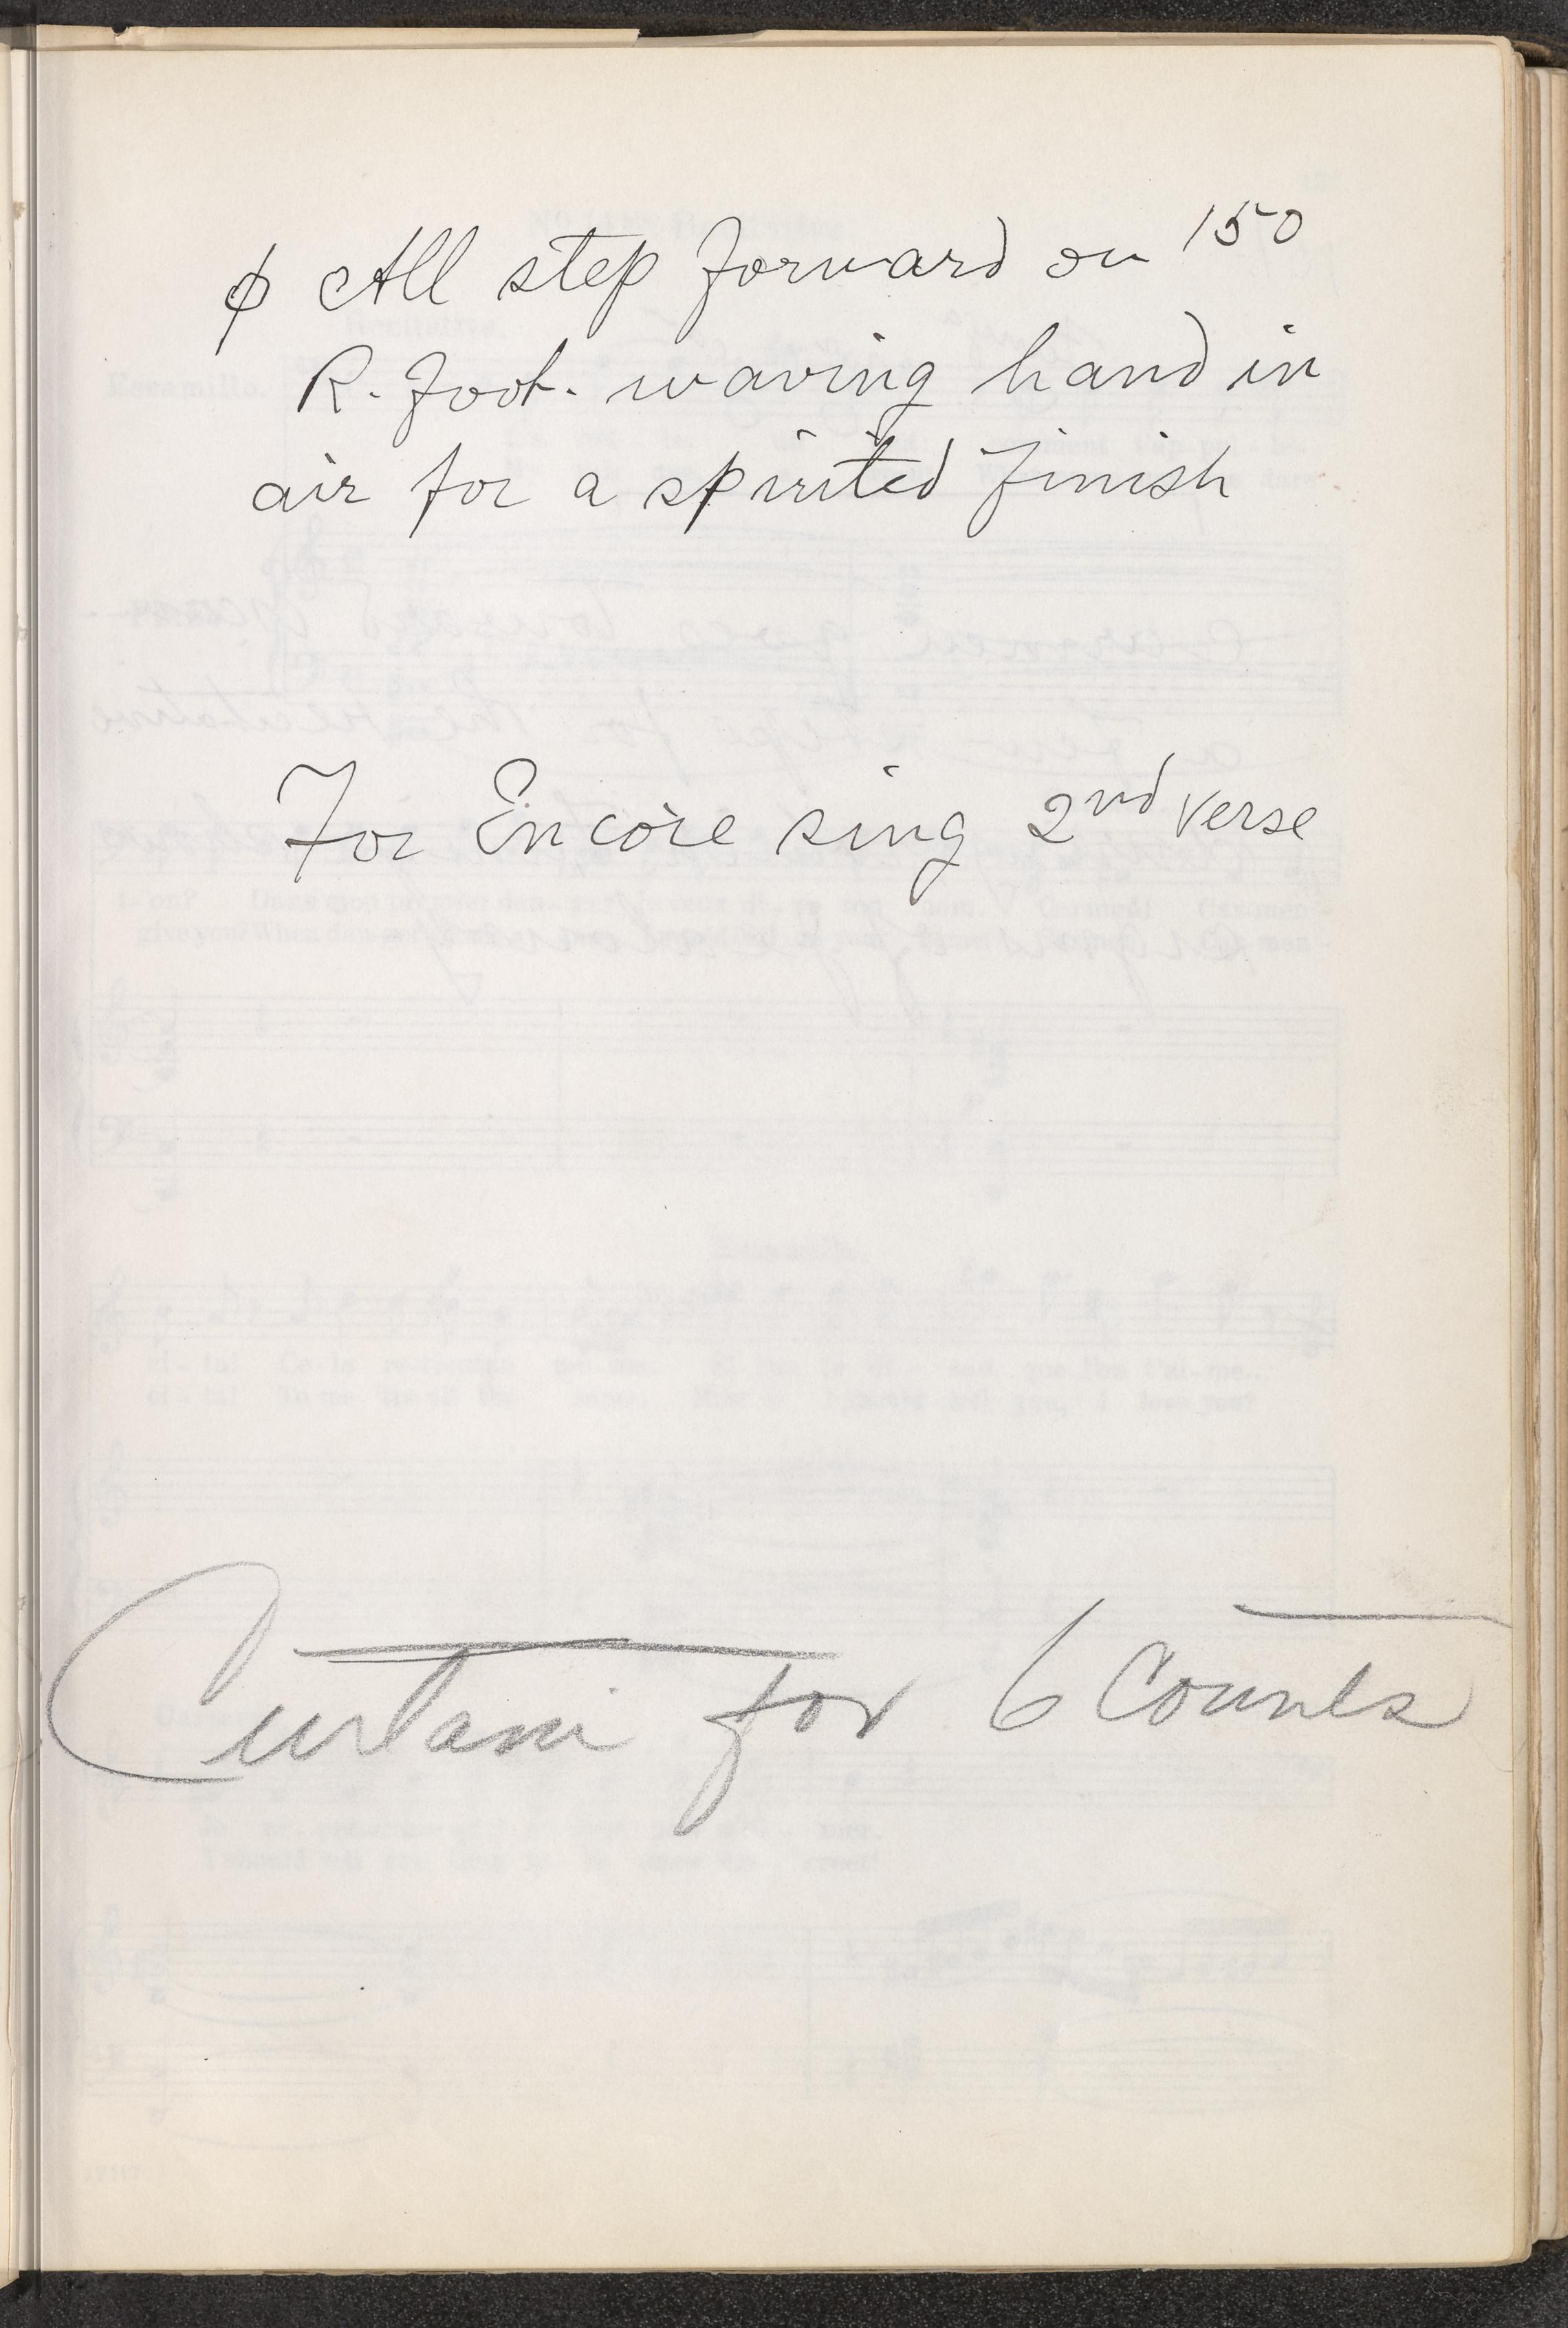 ϕ All step forward on 150
R. foot. waving hand in
air for a spirited finish
For Encore sing 2nd verse
Curtain for 6 Counts